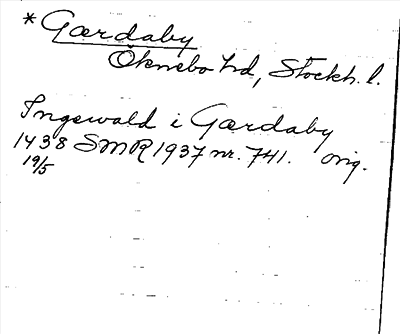 * Gærdaby
Öknebo hd, Stockh. l.
Ingewald i Gærdaby
1438 SMR 1937 nr. 741. orig.
19/5